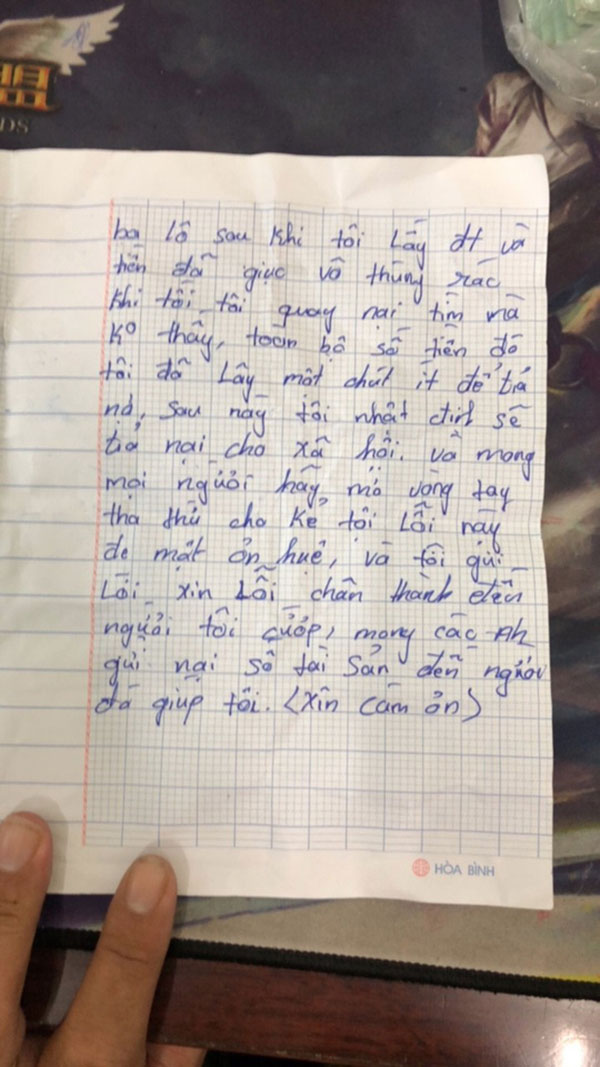 DS
ba lô sau khi tôi Lấy đt và
tiền đã giục vô thùng rác
khi tối tôi quay nại tìm mà
Ko thấy, toàn bộ số tiền đó
tôi đã Lấy một chút ít để tiả
nả, sau nãy tôi nhất địnk sẽ
tiả nại cho xã hội. và mong
mọi người hãy mở vòng tay
tha thứ cho kẻ tội Lỗi nãy
de mất ơn huệ, và tôi gửi
Lời xin Lỗi chân thành đến
người tôi cướp, mong các Ah
gửi nại số tài sản đến người
đó giúp tôi. (Xin cảm ơn)
HÒA BÌNH